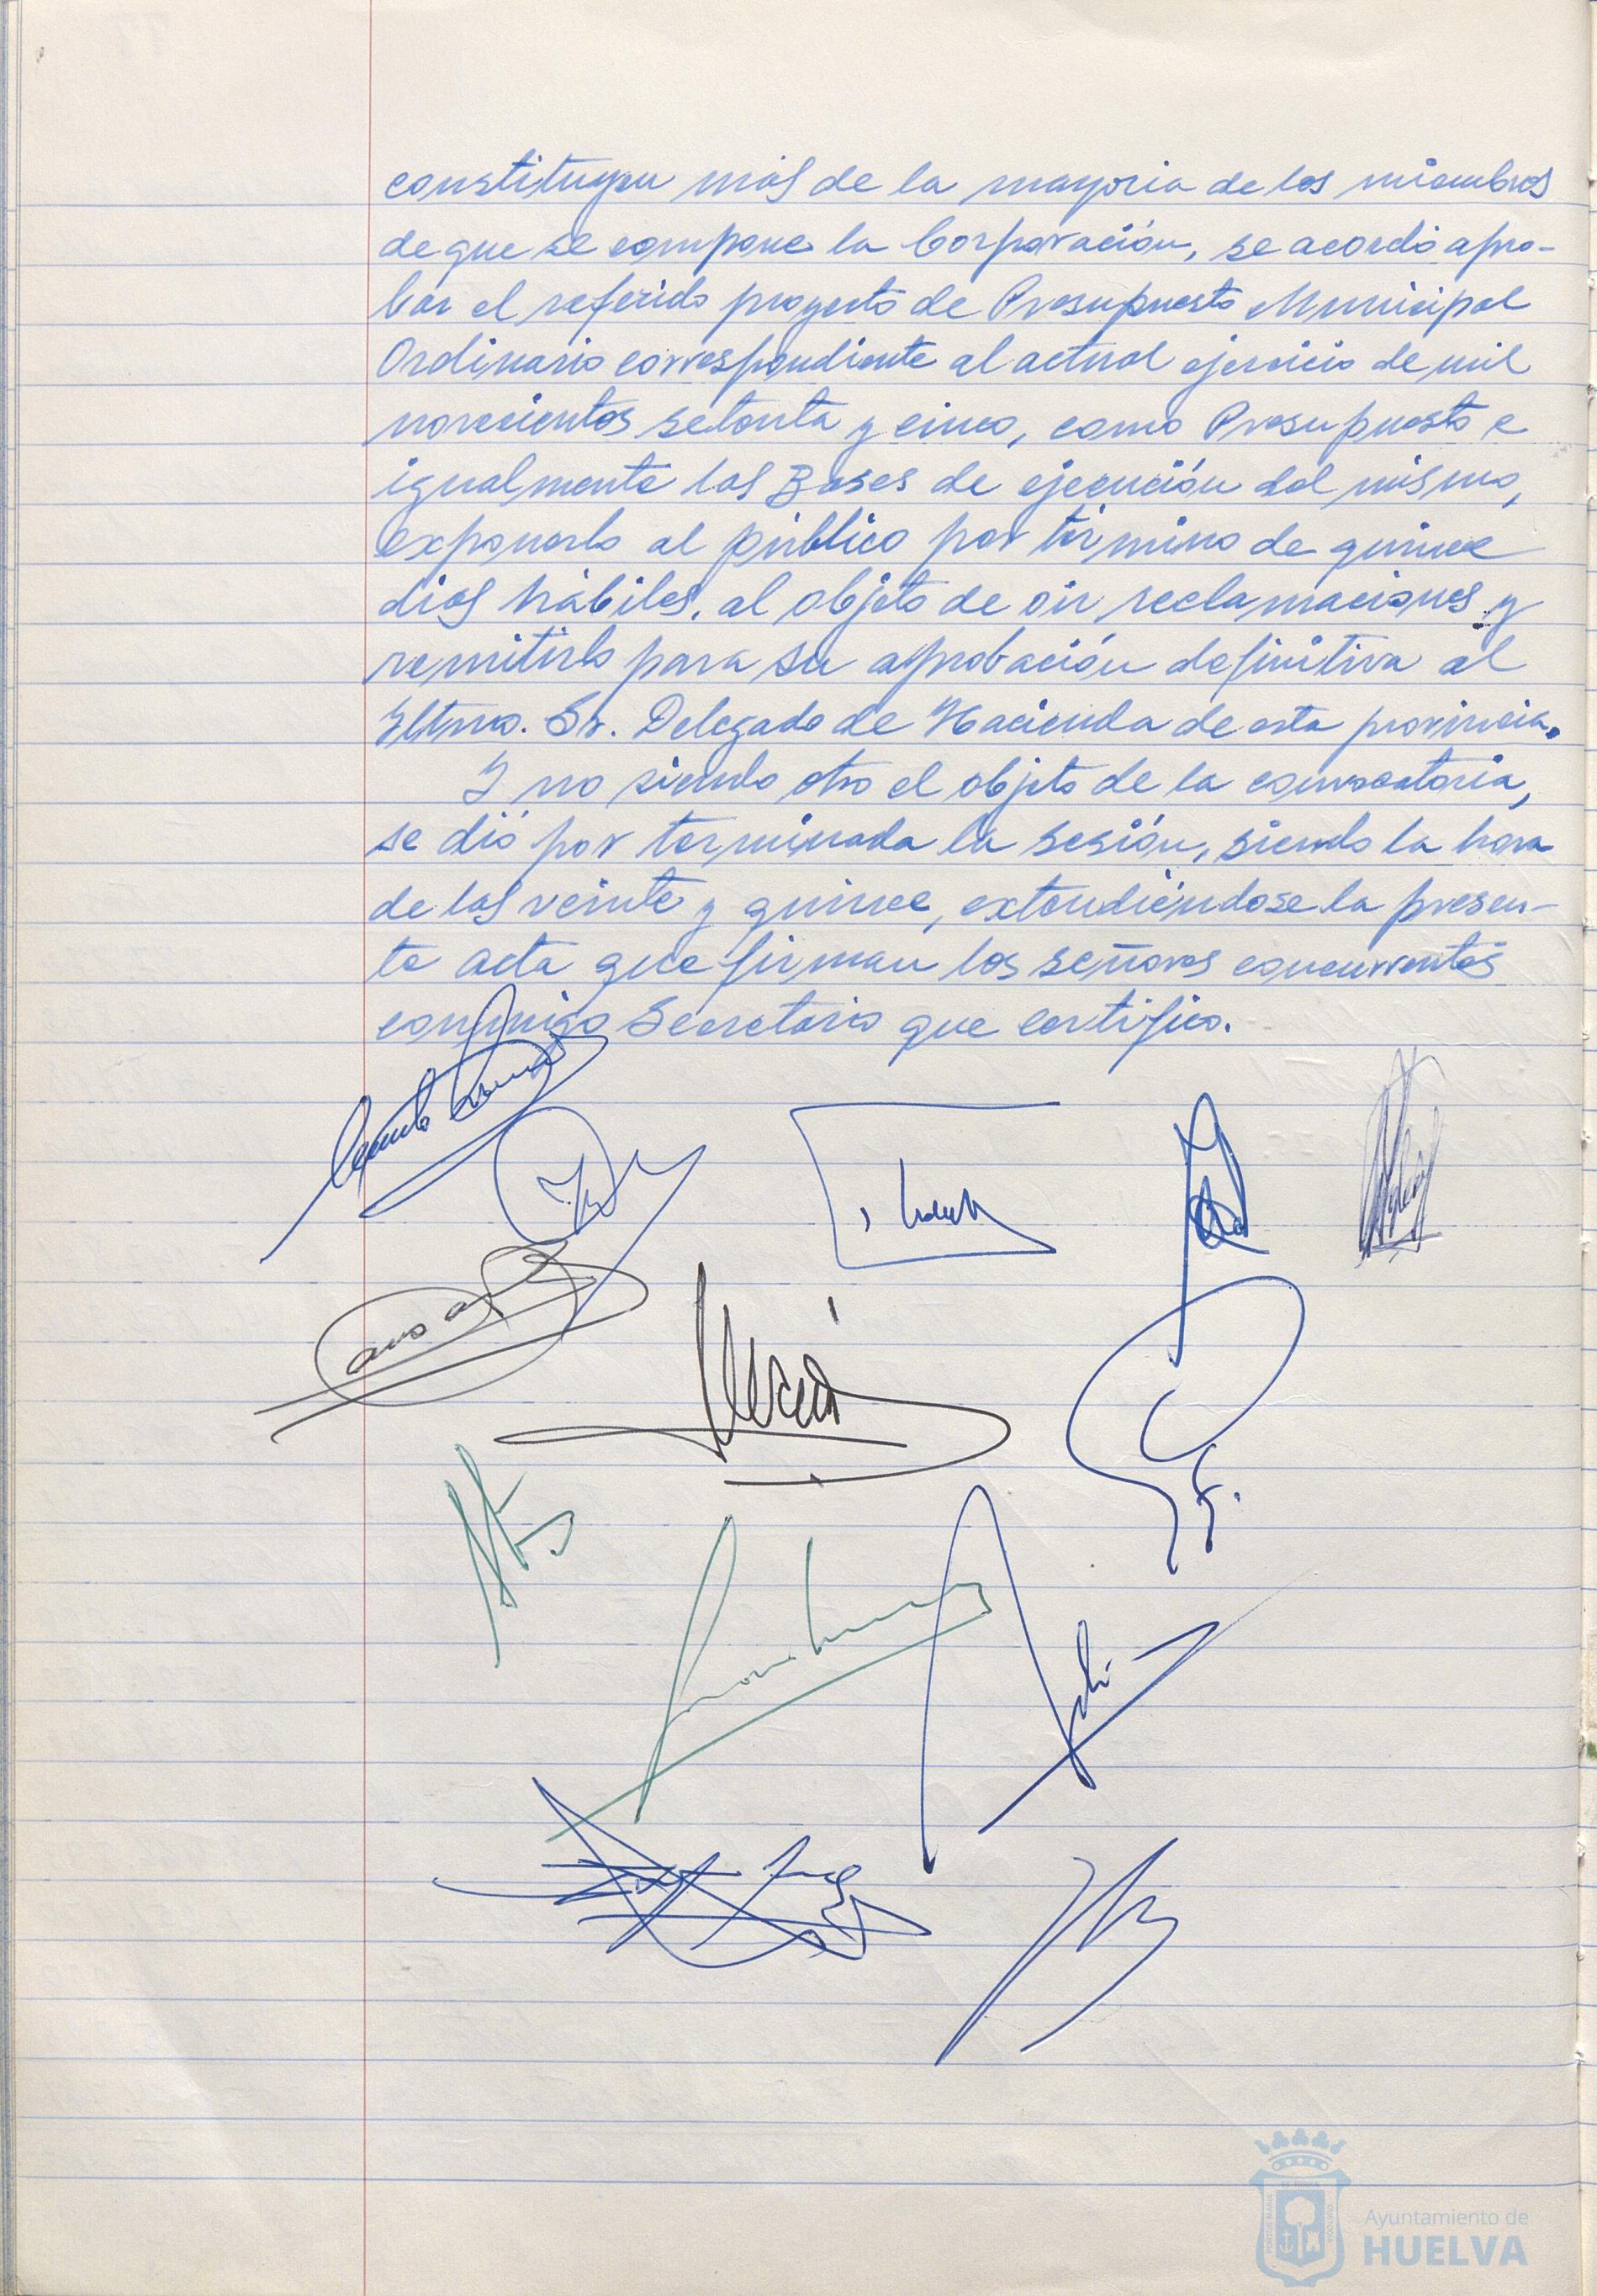 constituyen más de la mayoria de los miembros
de que se compone la Corporación, se acordó apro-
bar el referido proyecto de Presupuesto Municipal
Ordinario correspondiente al actual ejercicio de mil
novecientos setenta y cinco, como Presupuesto e
igualmente las Bases de ejecución del mismo,
exponerlo al público por término de quince
dias hábiles, al objeto de oir reclamaciones y
remitirlo para su aprobación definitiva al
Iltmo. Sr. Delegado de Hacienda de esta provincia.
Y no siendo otro el objeto de la convocatoria,
se dió por terminada la sesión, siendo la hora
de las veinte y quince, extendiéndose la presen-
te acta que firman los señores concurrentes
conmigo Secretario que certifico.
Ayuntamiento de
HUELVA